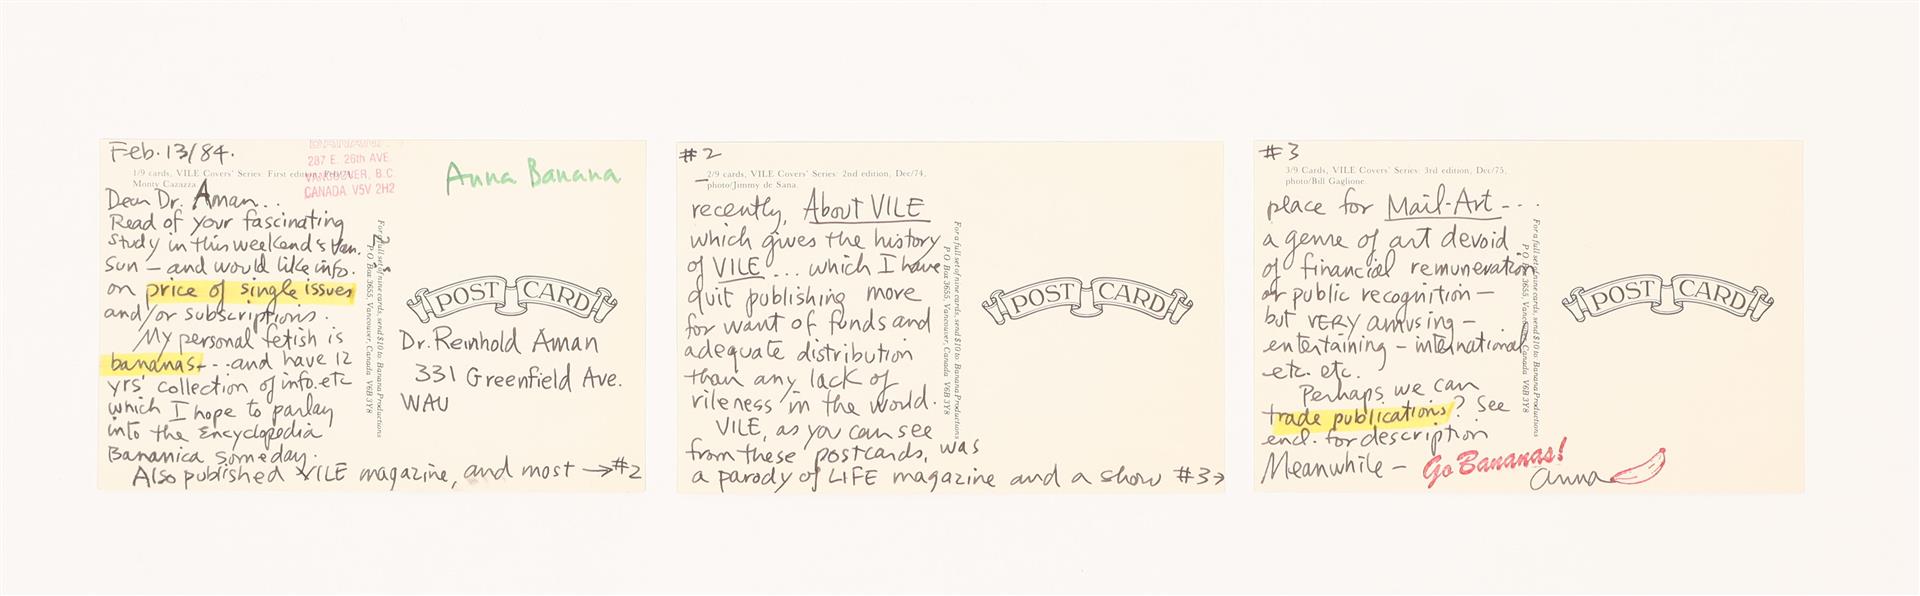 Feb. 13/84.
BANANA
287 E. 26th AVE.
VANCOUVER, B.C.
CANADA V5V 2H2
Anna Banana
1/9 cards, VILE Covers' Series: First edition, Feb/74,
Monty Cazazza
Dear Dr. Aman..
Read of your fascinating
study in this weekend's Van.
Sun – and would like info.
on price of single issues
and/or subscriptions.
My personal fetish is
bananas - ... and have 12
yrs' collection of info. etc
which I hope to parlay
into the Encyclopedia
Bananica someday.
Also published VILE magazine, and most → #2
For a full set of nine cards, send $10 to: Banana Productions
P O Box 3655, Vancouver, Canada V6B 3Y8
POST CARD
Dr. Reinhold Aman
331 Greenfield Ave.
WAU
#2
2/9 cards, VILE Covers' Series: 2nd edition, Dec/74,
photo/Jimmy de Sana.
recently, About VILE
which gives the history
of VILE ... which I have
quit publishing more
for want of funds and
adequate distribution
than any lack of
vileness in the world.
VILE, as you can see
from these postcards, was
a parody of LIFE magazine and a show #3→
For a full set of nine cards, send $10 to: Banana Productions
P O Box 3655, Vancouver, Canada V6B 3Y8
POST CARD
#3
3/9 cards, VILE Covers' Series: 3rd edition, Dec/75,
photo/Bill Gaglione.
place for Mail-Art - ...
a genre of art devoid
of financial remuneration
or public recognition –
but VERY amusing –
entertaining – international
etc. etc.
Perhaps we can
trade publications? See
encl. for description
Meanwhile – Go Bananas!
Anna
For a full set of nine cards, send $10 to: Banana Productions
P O Box 3655, Vancouver, Canada V6B 3Y8
POST CARD